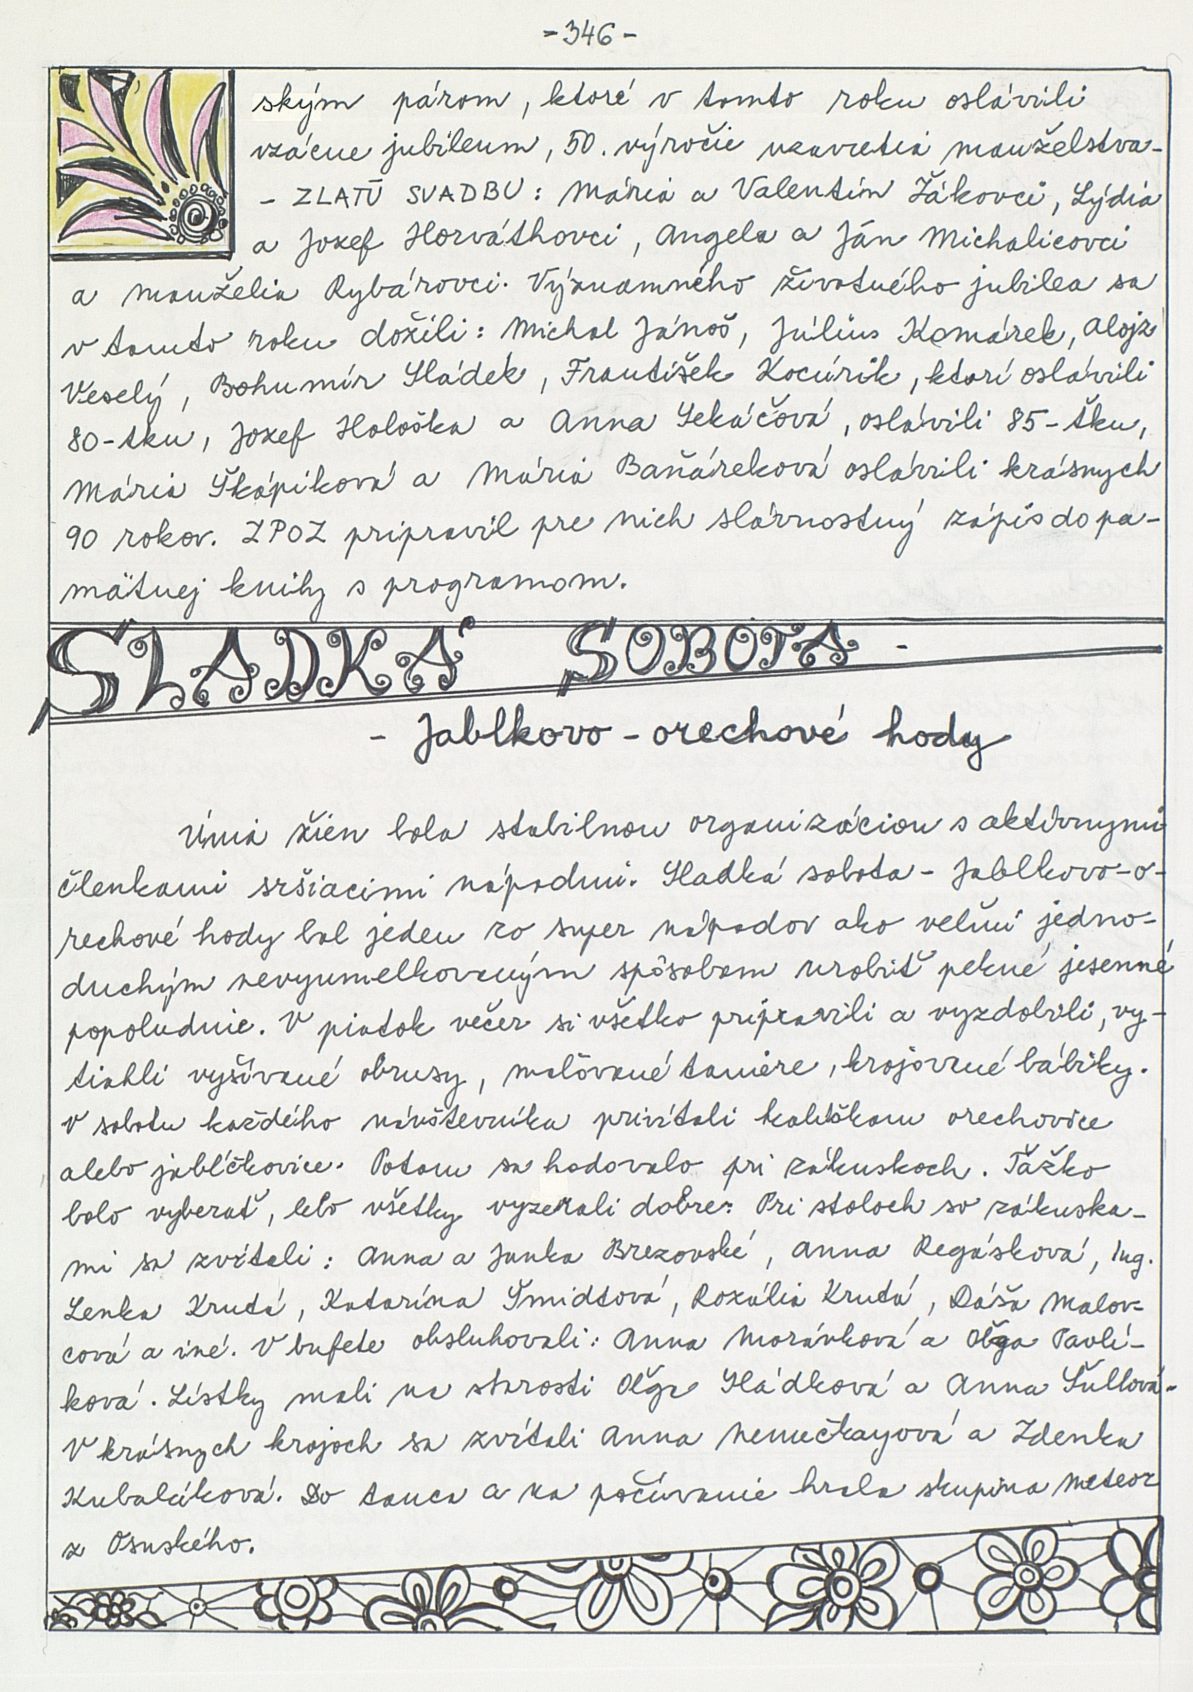 -346-
ským párom, ktoré v tomto roku oslávili
vzácne jubileum, 50. výročie uzavretia manželstva-
- ZLATÚ SVADBU: Mária a Valentín Žákovci, Lýdia
a Jozef Horváthovci, Angela a Ján Michalicovci
a manželia Rybárovci. Významného životného jubilea sa
v tomto roku dožili: Michal Jánoš, Július Komárek, Alojz
Veselý, Bohumír Sládek, František Kocúrik, ktorí oslávili
80-tku, Jozef Hološka a Anna Sekáčová, oslávili 85-tku,
Mária Škápiková a Mária Baňáreková oslávili krásnych
90 rokov. ZPOZ pripravil pre nich slávnostný zápis do pa-
mätnej knihy s programom.
SLADKÁ SOBOTA -
- Jablkovo-orechové hody
Únia žien bola stabilnou organizáciou s aktívnymi
členkami sršiacimi nápadmi. Sladká sobota - Jablkovo-o-
rechové hody bol jeden zo super nápadov ako veľmi jedno-
duchým nevyumelkovaným spôsobom urobiť pekné jesenné
popoludnie. V piatok večer si všetko pripravili a vyzdobili, vy-
tiahli vyšívané obrusy, maľované taniere, krojované bábiky.
V sobotu každého návštevníka privítali kalíškom orechovice
alebo jabĺčkovice. Potom sa hodovalo pri zákuskoch. Ťažko
bolo vyberať, lebo všetky vyzerali dobre. Pri stoloch so zákuska-
mi sa zvŕtali: Anna a Janka Brezovské, Anna Regásková, Ing.
Lenka Krutá, Katarína Šmidtová, Rozália Krutá, Dáša Malov-
cová a iné. V bufete obsluhovali: Anna Morávková a Oľga Pavlí-
ková. Lístky mali na starosti Oľga Sládková a Anna Šullová.
V krásnych krojoch sa zvŕtali Anna Nemečkayová a Zdenka
Kubaláková. Do tanca a na počúvanie hrala skupina Meteor
z Osuského.